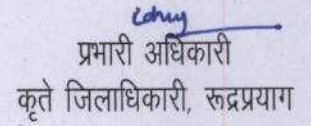 प्रभारी अधिकारी
कृते जिलाधिकारी, रूद्रप्रयाग